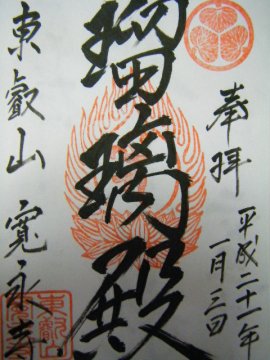 奉拝
平成二十一年
一月三日
瑠璃殿
東叡山 寛永寺